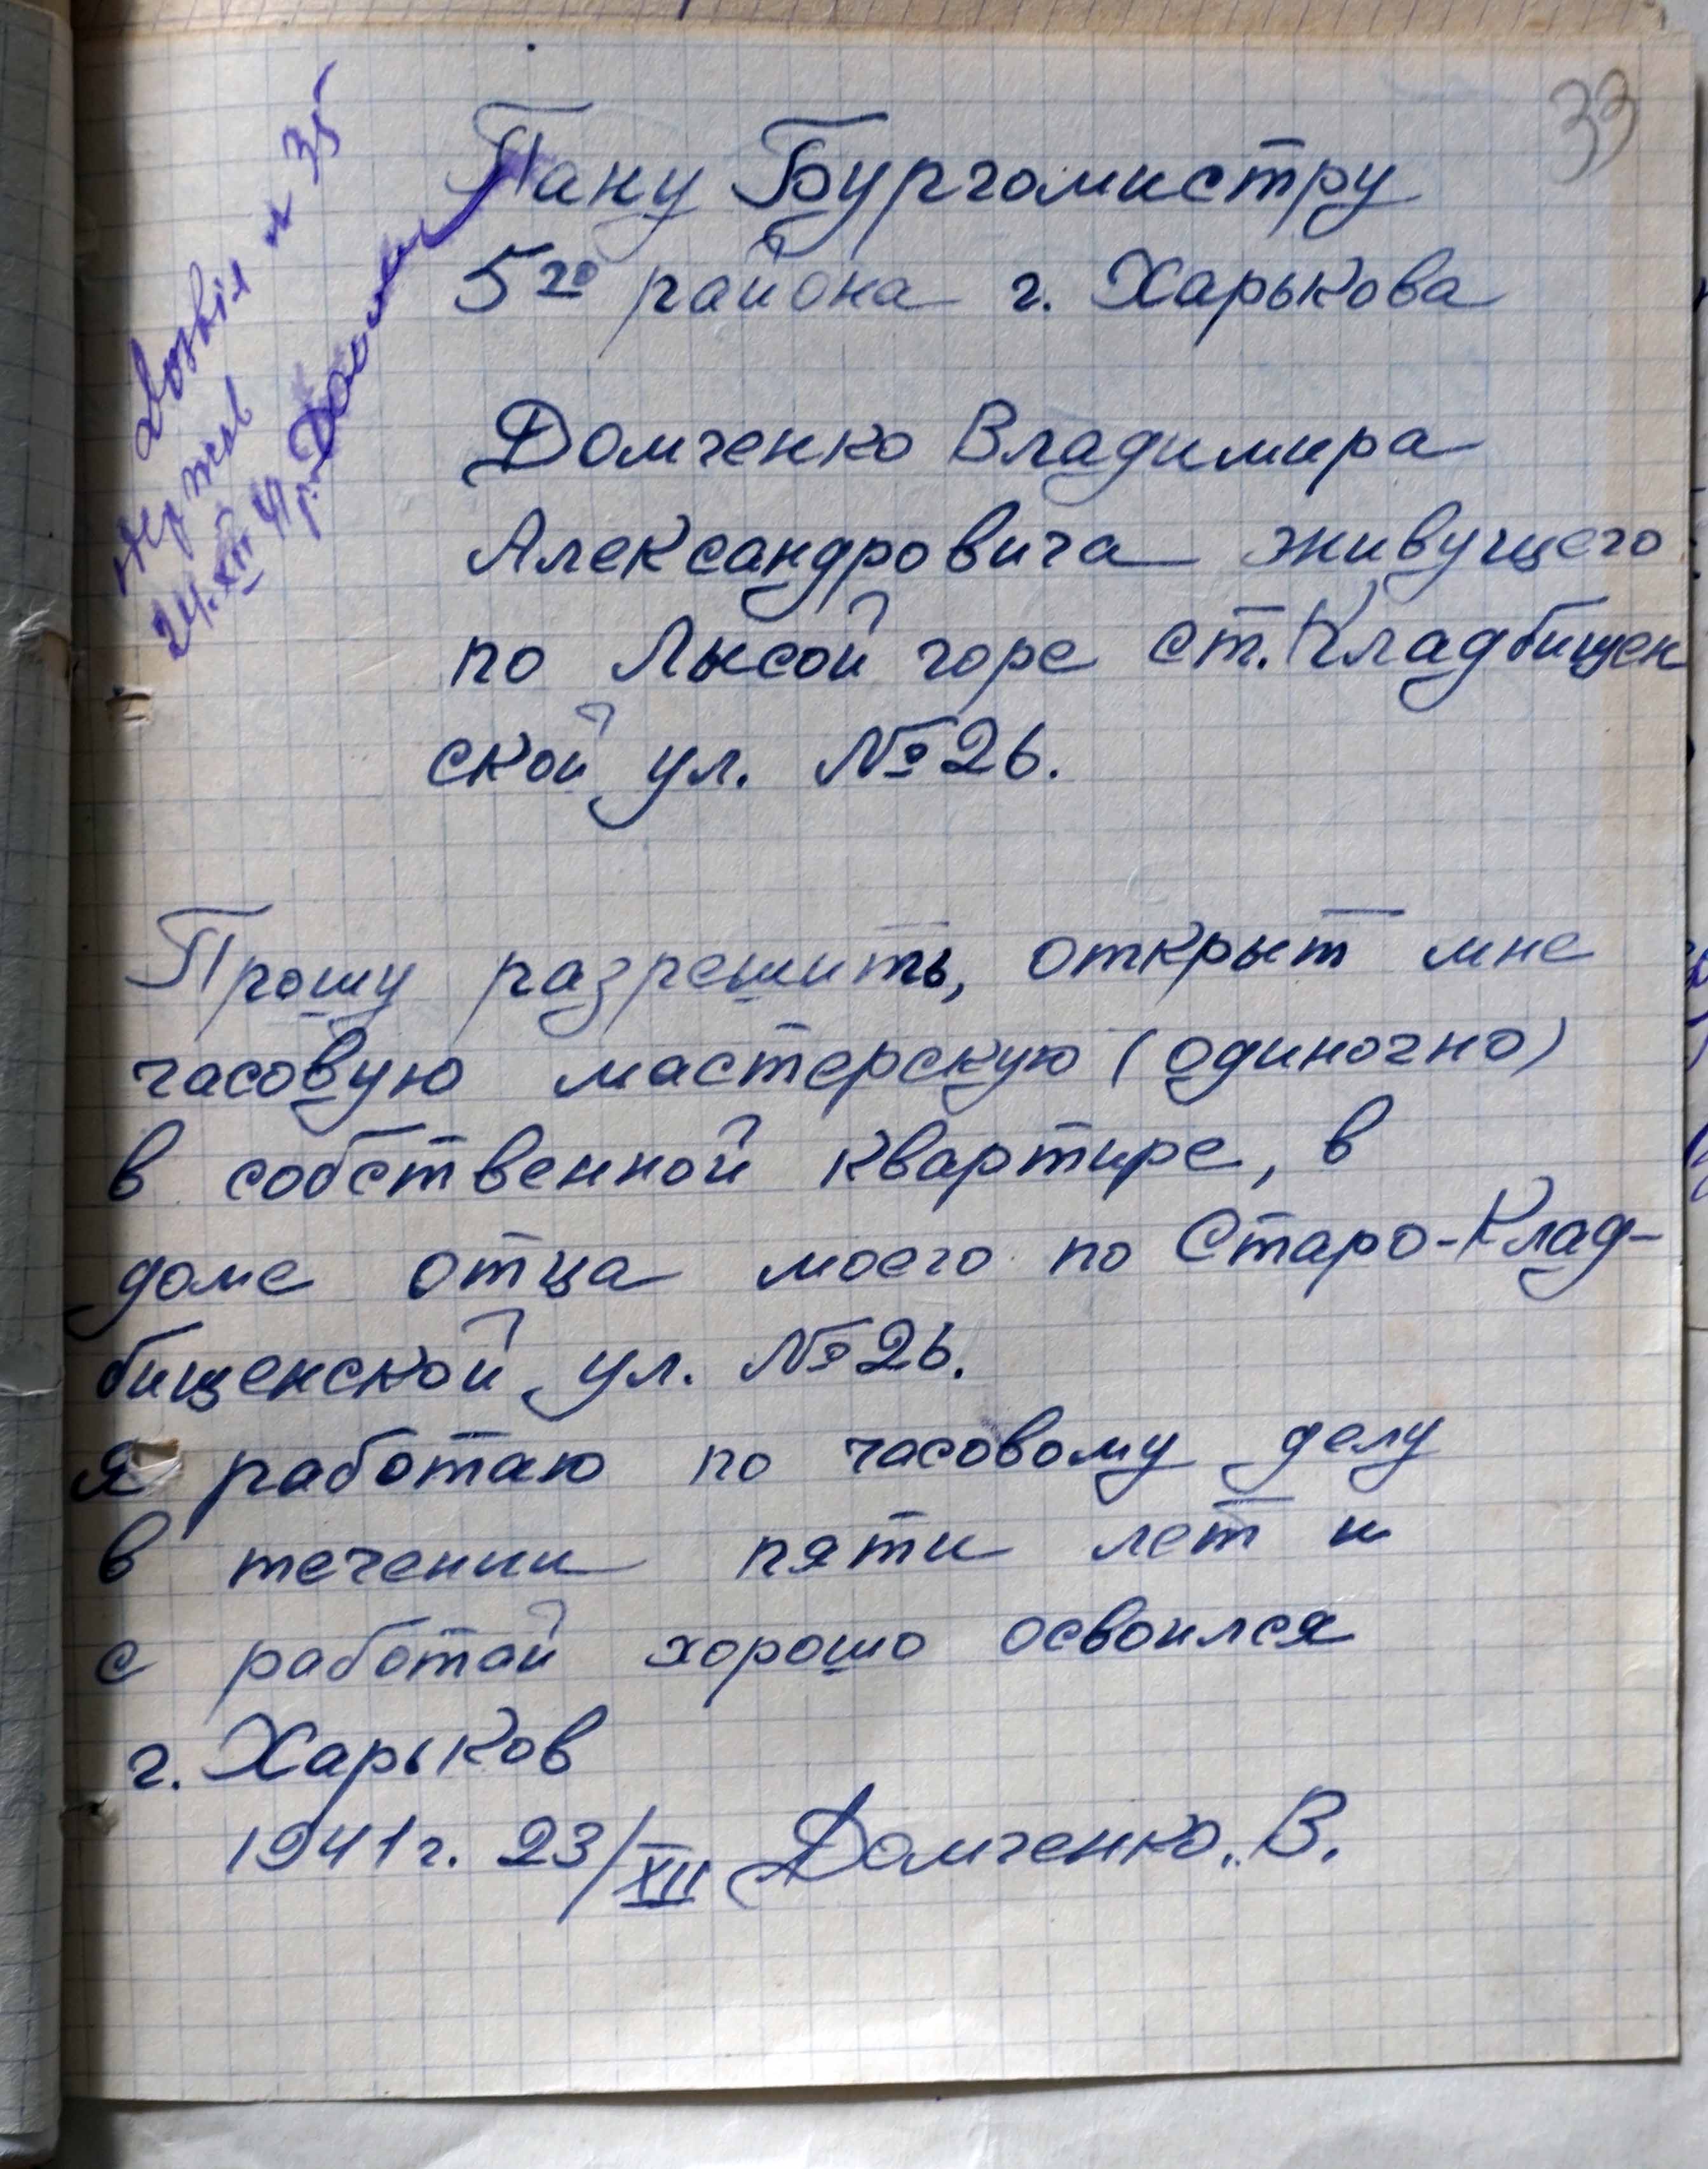 33
дозвіл № 35
держав
24.XII 41 р. Домченко
Пану Бургомистру
5го района г. Харькова
Домченко Владимира
Александровича живущего
по Лысой горе ст. Кладбищен
ской ул. № 26.
Прошу разрешить, открыт мне
часовую мастерскую (одиночно)
в собственной квартире, в
доме отца моего по Старо-Клад-
бищенской ул. № 26.
Я работаю по часовому делу
в течении пяти лет и
с работай хорошо освоился
г. Харьков
1941 г. 23/XII Домченко. В.